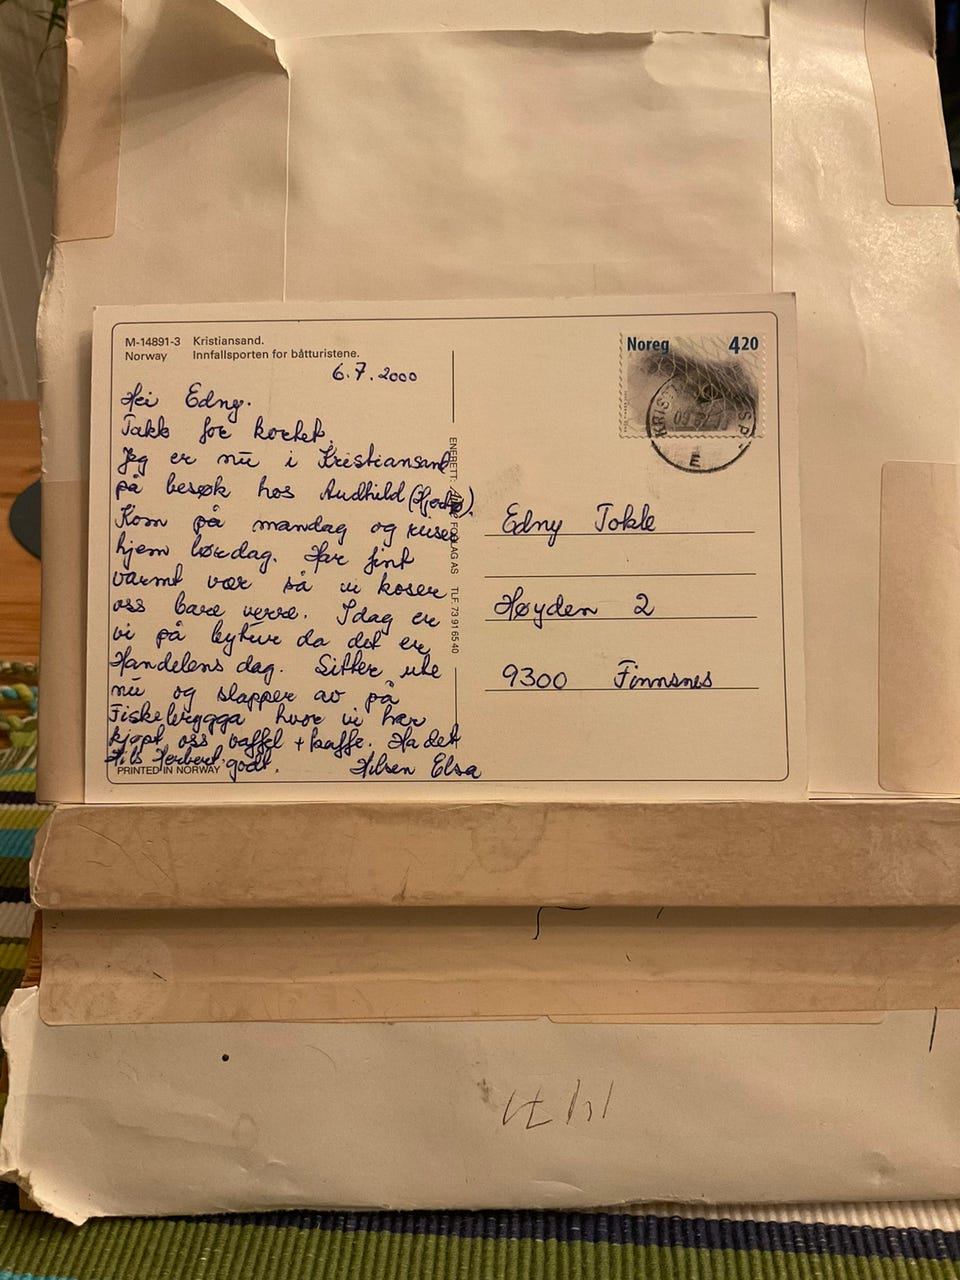 M-14891-3 Kristiansand.
Norway Innfallsporten for båtturistene.
6.7.2000
Hei Edny.
Takk for kortet.
Jeg er nu i Kristiansand
på besøk hos Audhild
Kom på mandag og reiser
hjem lørdag. Har fint
varmt vær så vi koser
oss bare verre. Idag er
vi på bytur da det er
Handelens dag. Sitter ute
nu og slapper av på
Fiskebrygga hvor vi har
kjøpt oss vaffel + kaffe. Ha det
godt. Hilsen Elsa
Hils Herbert
PRINTED IN NORWAY
ENERETT: FORLAG AS TLF. 73 91 65 40
Noreg 420
E
Edny Tokle
Høyden 2
9300 Finnsnes